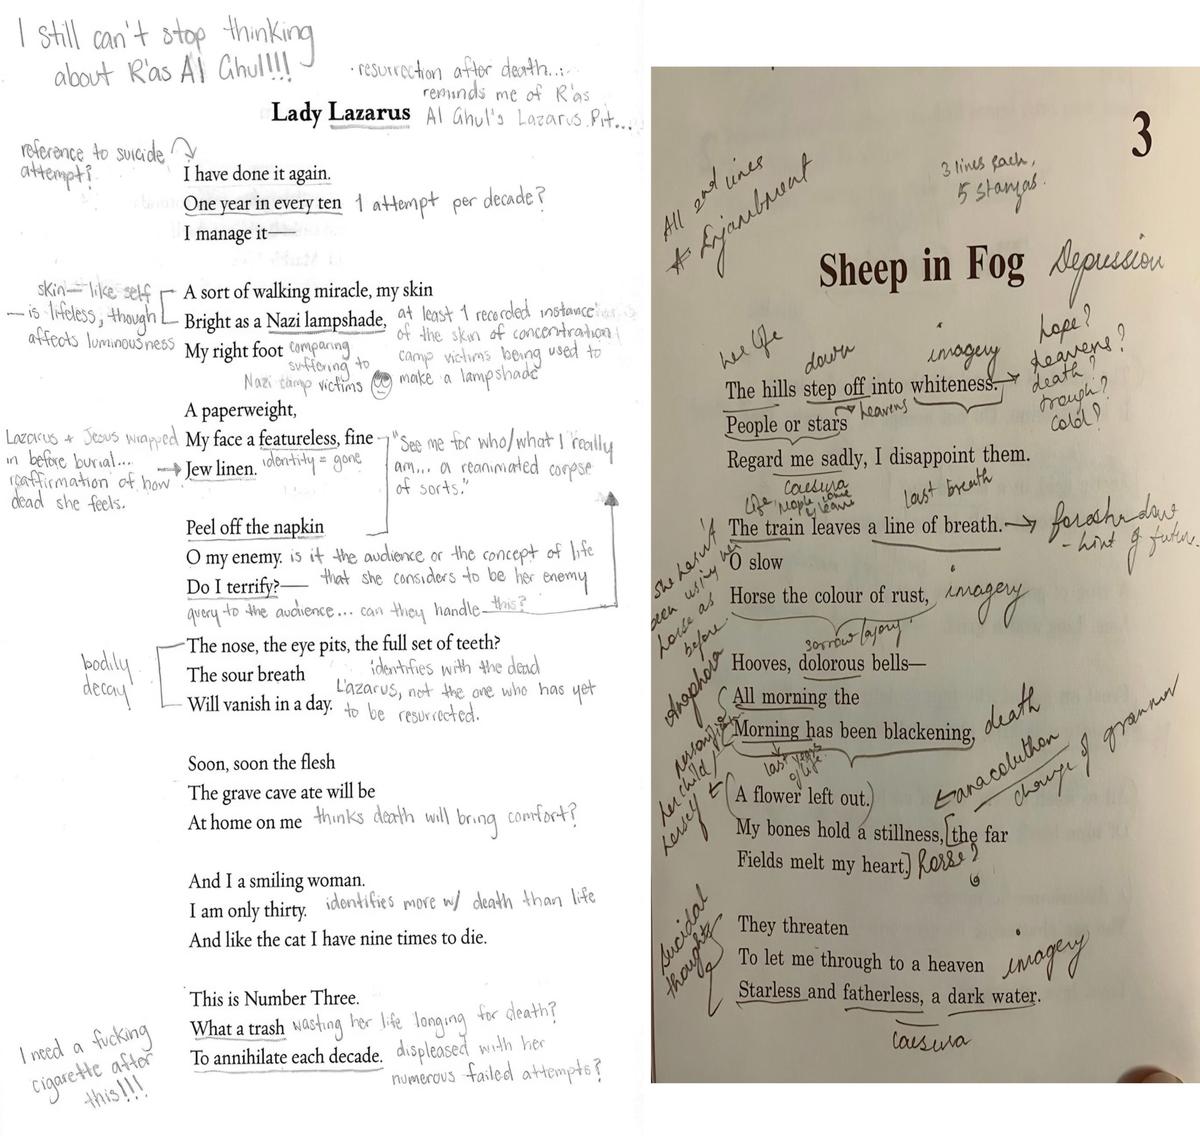 I still can't stop thinking
about R'as Al Ghul!!!
· resurrection after death...
reminds me of R'as
Lady Lazarus Al Ghul's Lazarus Pit...
reference to suicide
attempt?
I have done it again.
One year in every ten 1 attempt per decade?
I manage it—
skin— like self
— is lifeless, though
affects luminousness
A sort of walking miracle, my skin
Bright as a Nazi lampshade,
My right foot
comparing
suffering to
Nazi camp victims
at least 1 recorded instance
of the skin of concentration
camp victims being used to
make a lampshade
A paperweight,
My face a featureless, fine
Jew linen. identity = gone
Lazarus + Jesus wrapped
in before burial...
reaffirmation of how
dead she feels.
"See me for who/what I really
am... a reanimated corpse
of sorts."
Peel off the napkin
O my enemy. is it the audience or the concept of life
Do I terrify?— that she considers to be her enemy
query to the audience... can they handle this?
bodily
decay
The nose, the eye pits, the full set of teeth?
The sour breath
Will vanish in a day.
identifies with the dead
Lazarus, not the one who has yet
to be resurrected.
Soon, soon the flesh
The grave cave ate will be
At home on me thinks death will bring comfort?
And I a smiling woman.
I am only thirty. identifies more w/ death than life
And like the cat I have nine times to die.
This is Number Three.
What a trash wasting her life longing for death?
To annihilate each decade. displeased with her
numerous failed attempts?
I need a fucking
cigarette after
this!!!
3
All end lines
* Enjambment
3 lines each,
5 stanzas.
Sheep in Fog Depression
her life
down
imagery
hope?
heavens?
death?
trough?
cold?
The hills step off into whiteness.
People or stars heavens
Regard me sadly, I disappoint them.
caesura
life, people come
& leave
last breath
The train leaves a line of breath. foreshadow
- hint of future.
O slow
Horse the colour of rust, imagery
she hasn't
been using her
horse as
before.
sorrow/agony
Hooves, dolorous bells—
Anaphora
All morning the
Morning has been blackening, death
last years
of life
personifies
her child/
herself
A flower left out.
anacoluthon
change of grammar
My bones hold a stillness, the far
Fields melt my heart. Horse?
suicidal
thoughts
They threaten
To let me through to a heaven imagery
Starless and fatherless, a dark water.
caesura